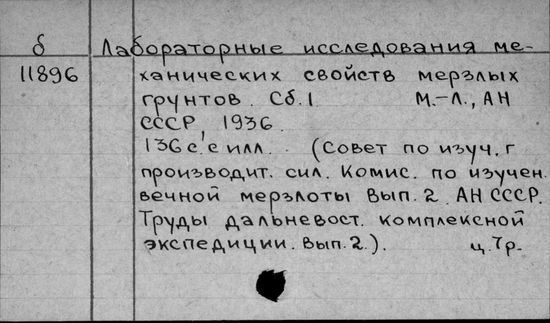 б Лабораторные исследования ме-
11896 ханических свойств мерзлых
грунтов. Сб.1 М.-Л., АН
СССР, 1936.
136 с. с илл. (Совет по изуч. г
производит. сил. Комис. по изучен.
вечной мерзлоты вып. 2. АН СССР.
Труды дальневост. комплексной
экспедиции. Вып. 2.). ц. 7р.